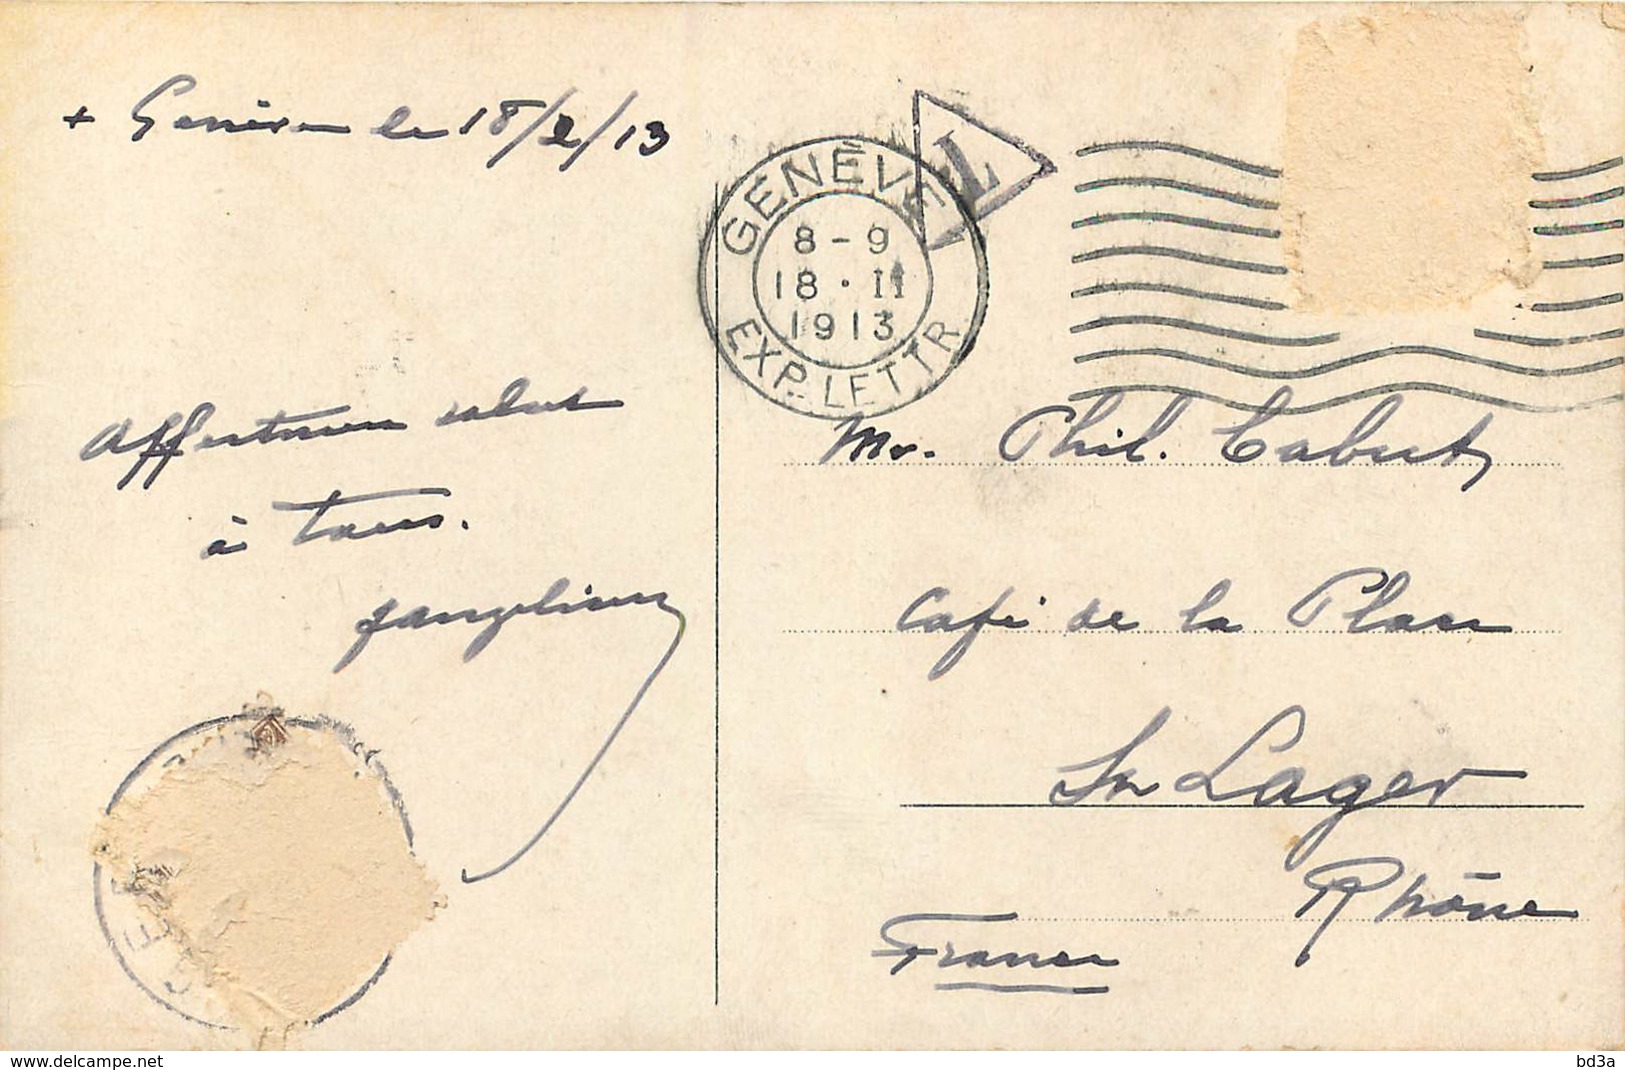 + Genève le 18/2/13
GENÈVE 1
8-9
18·II
1913
EXP. LETTR.
L
Affectueux salut
à tous.
Mr. Phil. Cabut
Café de la Place
St Lager
Rhône
France
www.delcampe.net
bd3a